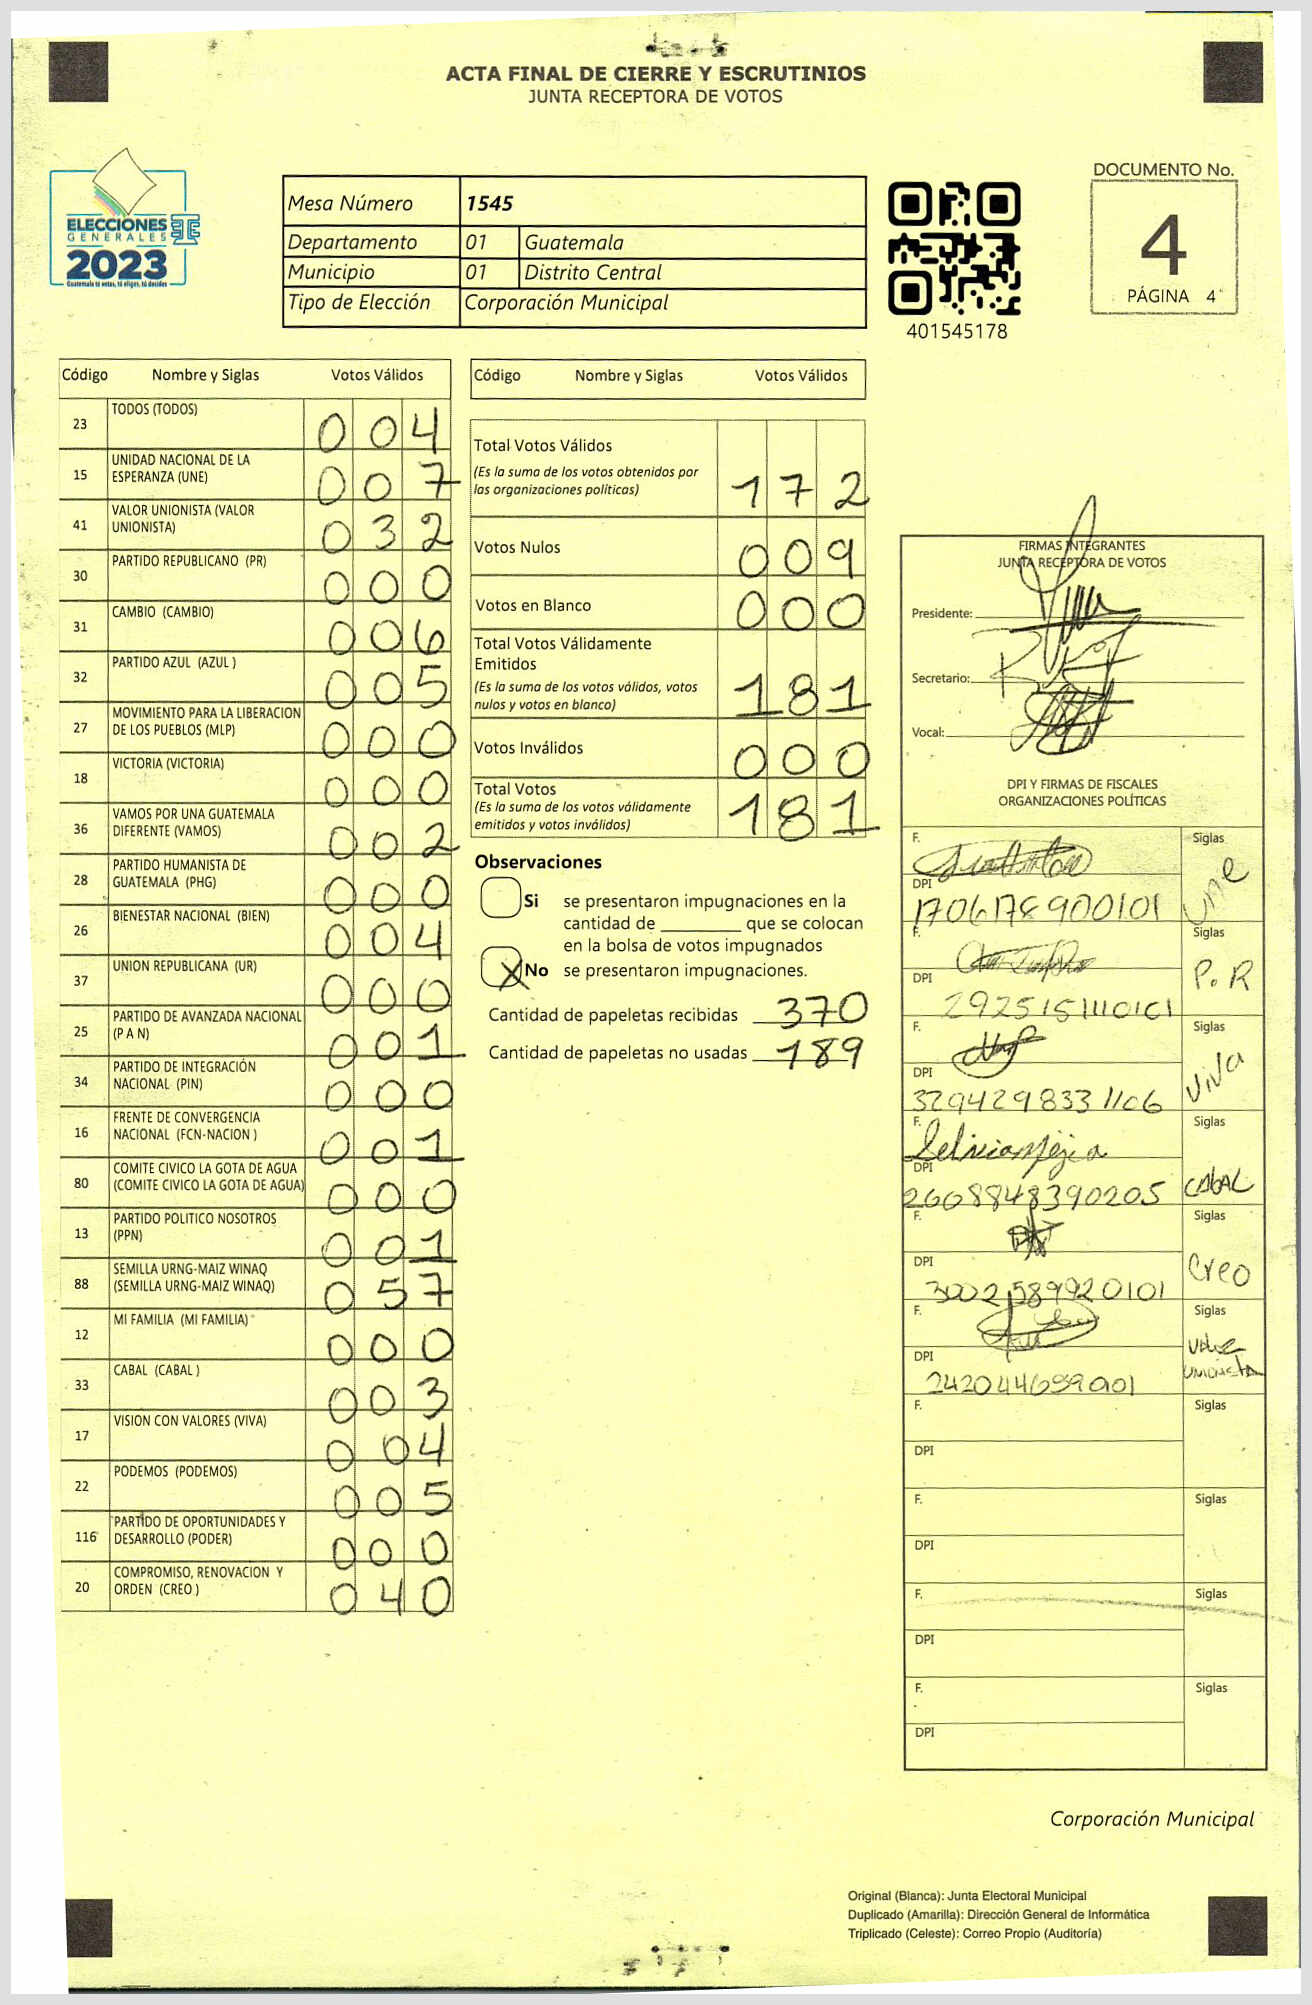 ACTA FINAL DE CIERRE Y ESCRUTINIOS
JUNTA RECEPTORA DE VOTOS
ELECCIONES
GENERALES
2023
Guatemala tú votas, tú eliges, tú decides
Mesa Número 1545
Departamento 01 Guatemala
Municipio 01 Distrito Central
Tipo de Elección Corporación Municipal
401545178
DOCUMENTO No.
4
PÁGINA 4
Código Nombre y Siglas Votos Válidos
23 TODOS (TODOS) 004
15 UNIDAD NACIONAL DE LA ESPERANZA (UNE) 007
41 VALOR UNIONISTA (VALOR UNIONISTA) 032
30 PARTIDO REPUBLICANO (PR) 000
31 CAMBIO (CAMBIO) 006
32 PARTIDO AZUL (AZUL ) 005
27 MOVIMIENTO PARA LA LIBERACION DE LOS PUEBLOS (MLP) 000
18 VICTORIA (VICTORIA) 000
36 VAMOS POR UNA GUATEMALA DIFERENTE (VAMOS) 002
28 PARTIDO HUMANISTA DE GUATEMALA (PHG) 000
26 BIENESTAR NACIONAL (BIEN) 004
37 UNION REPUBLICANA (UR) 000
25 PARTIDO DE AVANZADA NACIONAL (P A N) 001
34 PARTIDO DE INTEGRACIÓN NACIONAL (PIN) 000
16 FRENTE DE CONVERGENCIA NACIONAL (FCN-NACION ) 001
80 COMITE CIVICO LA GOTA DE AGUA (COMITE CIVICO LA GOTA DE AGUA) 000
13 PARTIDO POLITICO NOSOTROS (PPN) 001
88 SEMILLA URNG-MAIZ WINAQ (SEMILLA URNG-MAIZ WINAQ) 057
12 MI FAMILIA (MI FAMILIA) 000
33 CABAL (CABAL ) 003
17 VISION CON VALORES (VIVA) 004
22 PODEMOS (PODEMOS) 005
116 PARTIDO DE OPORTUNIDADES Y DESARROLLO (PODER) 000
20 COMPROMISO, RENOVACION Y ORDEN (CREO ) 040
Código Nombre y Siglas Votos Válidos
Total Votos Válidos
(Es la suma de los votos obtenidos por
las organizaciones políticas) 172
Votos Nulos 009
Votos en Blanco 000
Total Votos Válidamente
Emitidos
(Es la suma de los votos válidos, votos
nulos y votos en blanco) 181
Votos Inválidos 000
Total Votos
(Es la suma de los votos válidamente
emitidos y votos inválidos) 181
Observaciones
Si se presentaron impugnaciones en la
cantidad de ________ que se colocan
en la bolsa de votos impugnados
X No se presentaron impugnaciones.
Cantidad de papeletas recibidas 370
Cantidad de papeletas no usadas 189
FIRMAS INTEGRANTES
JUNTA RECEPTORA DE VOTOS
Presidente:
Secretario:
Vocal:
DPI Y FIRMAS DE FISCALES
ORGANIZACIONES POLÍTICAS
F. Siglas
DPI 1706178900101 une
F. Siglas
DPI 2925151110101 P.R
F. Siglas
DPI 3294298331106 Viva
F. Siglas
DPI 2608848390205 CABAL
F. Siglas
DPI 3002589920101 Creo
F. Siglas
DPI Valor unionista
F. Siglas
DPI
F. Siglas
DPI
F. Siglas
DPI
F. Siglas
DPI
Corporación Municipal
Original (Blanca): Junta Electoral Municipal
Duplicado (Amarilla): Dirección General de Informática
Triplicado (Celeste): Correo Propio (Auditoría)